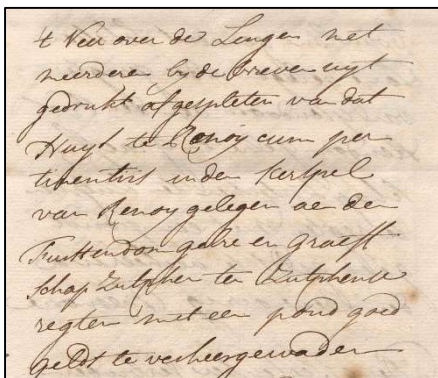 't Veer over de Lingen met
meerdere by de brieven uyt
gedrukt afgespleten van dat
Huys te Renoy cum per
tinentiis in den kerspel
van Renoy gelegen aen den
Furstendom gelre en graeff
schap Zutphen ten Zutphense
regten met een pond goed
geldt te verheergewaden